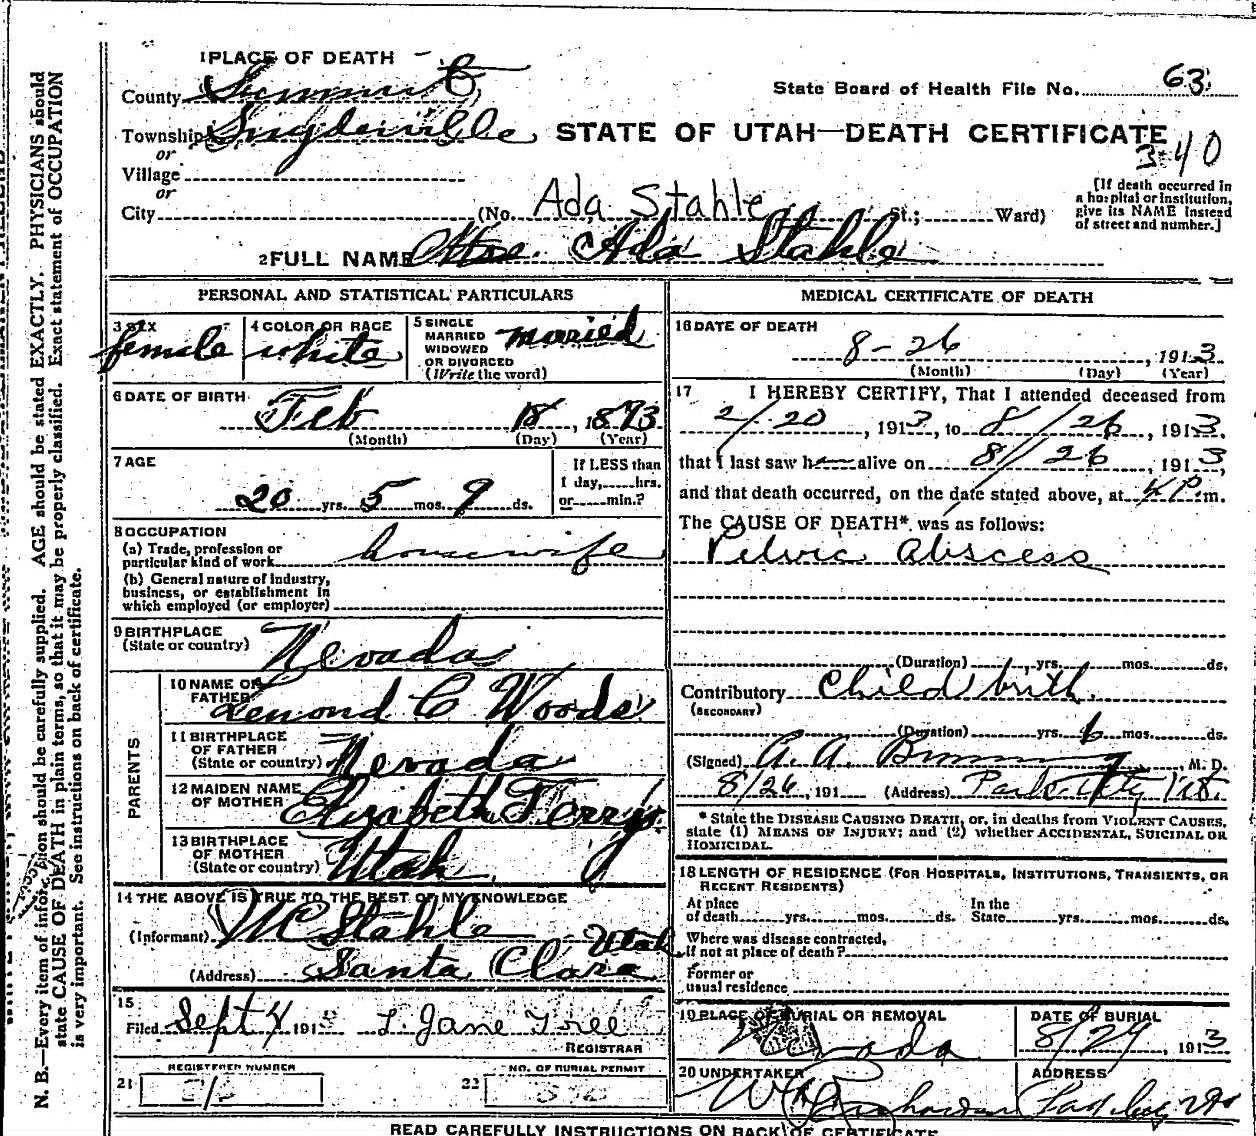 1 PLACE OF DEATH
County Summit
State Board of Health File No. 63
Township Snyderville
STATE OF UTAH—DEATH CERTIFICATE
340
or
Village
or
City (No. Ada Stahle St.; Ward)
[If death occurred in a hospital or institution, give its NAME instead of street and number.]
2 FULL NAME Mrs. Ada Stahle
PERSONAL AND STATISTICAL PARTICULARS
3 SEX female
4 COLOR OR RACE white
5 SINGLE MARRIED WIDOWED OR DIVORCED (Write the word) married
6 DATE OF BIRTH Feb 18, 1893
(Month) (Day) (Year)
7 AGE 20 yrs. 5 mos. 9 ds.
If LESS than 1 day, hrs. or min.?
8 OCCUPATION
(a) Trade, profession or particular kind of work housewife
(b) General nature of industry, business, or establishment in which employed (or employer)
9 BIRTHPLACE (State or country) Nevada
PARENTS
10 NAME OF FATHER Lemond C Woods
11 BIRTHPLACE OF FATHER (State or country) Nevada
12 MAIDEN NAME OF MOTHER Elizabeth Terry
13 BIRTHPLACE OF MOTHER (State or country) Utah
14 THE ABOVE IS TRUE TO THE BEST OF MY KNOWLEDGE
(Informant) M C Stahle
(Address) Santa Clara Utah
15
Filed Sept 4 191 L. Jane Tree
REGISTRAR
21 REGISTERED NUMBER
22 NO. OF BURIAL PERMIT
MEDICAL CERTIFICATE OF DEATH
16 DATE OF DEATH
8-26, 1913
(Month) (Day) (Year)
17 I HEREBY CERTIFY, That I attended deceased from
2/20, 1913, to 8/26, 1913,
that I last saw h alive on 8/26, 1913,
and that death occurred, on the date stated above, at 4 P.m.
The CAUSE OF DEATH* was as follows:
Pelvic abscess
(Duration) yrs. mos. ds.
Contributory Child birth
(SECONDARY)
(Duration) yrs. 6 mos. ds.
(Signed) A. A. , M. D.
8/26, 191 (Address) Park City Ut.
* State the DISEASE CAUSING DEATH, or, in deaths from VIOLENT CAUSES, state (1) MEANS OF INJURY; and (2) whether ACCIDENTAL, SUICIDAL OR HOMICIDAL.
18 LENGTH OF RESIDENCE (FOR HOSPITALS, INSTITUTIONS, TRANSIENTS, OR RECENT RESIDENTS)
At place of death yrs. mos. ds. In the State yrs. mos. ds.
Where was disease contracted, if not at place of death?
Former or usual residence
19 PLACE OF BURIAL OR REMOVAL Nevada
DATE OF BURIAL 8/29, 1913
20 UNDERTAKER
ADDRESS
READ CAREFULLY INSTRUCTIONS ON BACK OF CERTIFICATE
N. B.—Every item of information should be carefully supplied. AGE should be stated EXACTLY. PHYSICIANS should
state CAUSE OF DEATH in plain terms, so that it may be properly classified. Exact statement of OCCUPATION
is very important. See instructions on back of certificate.